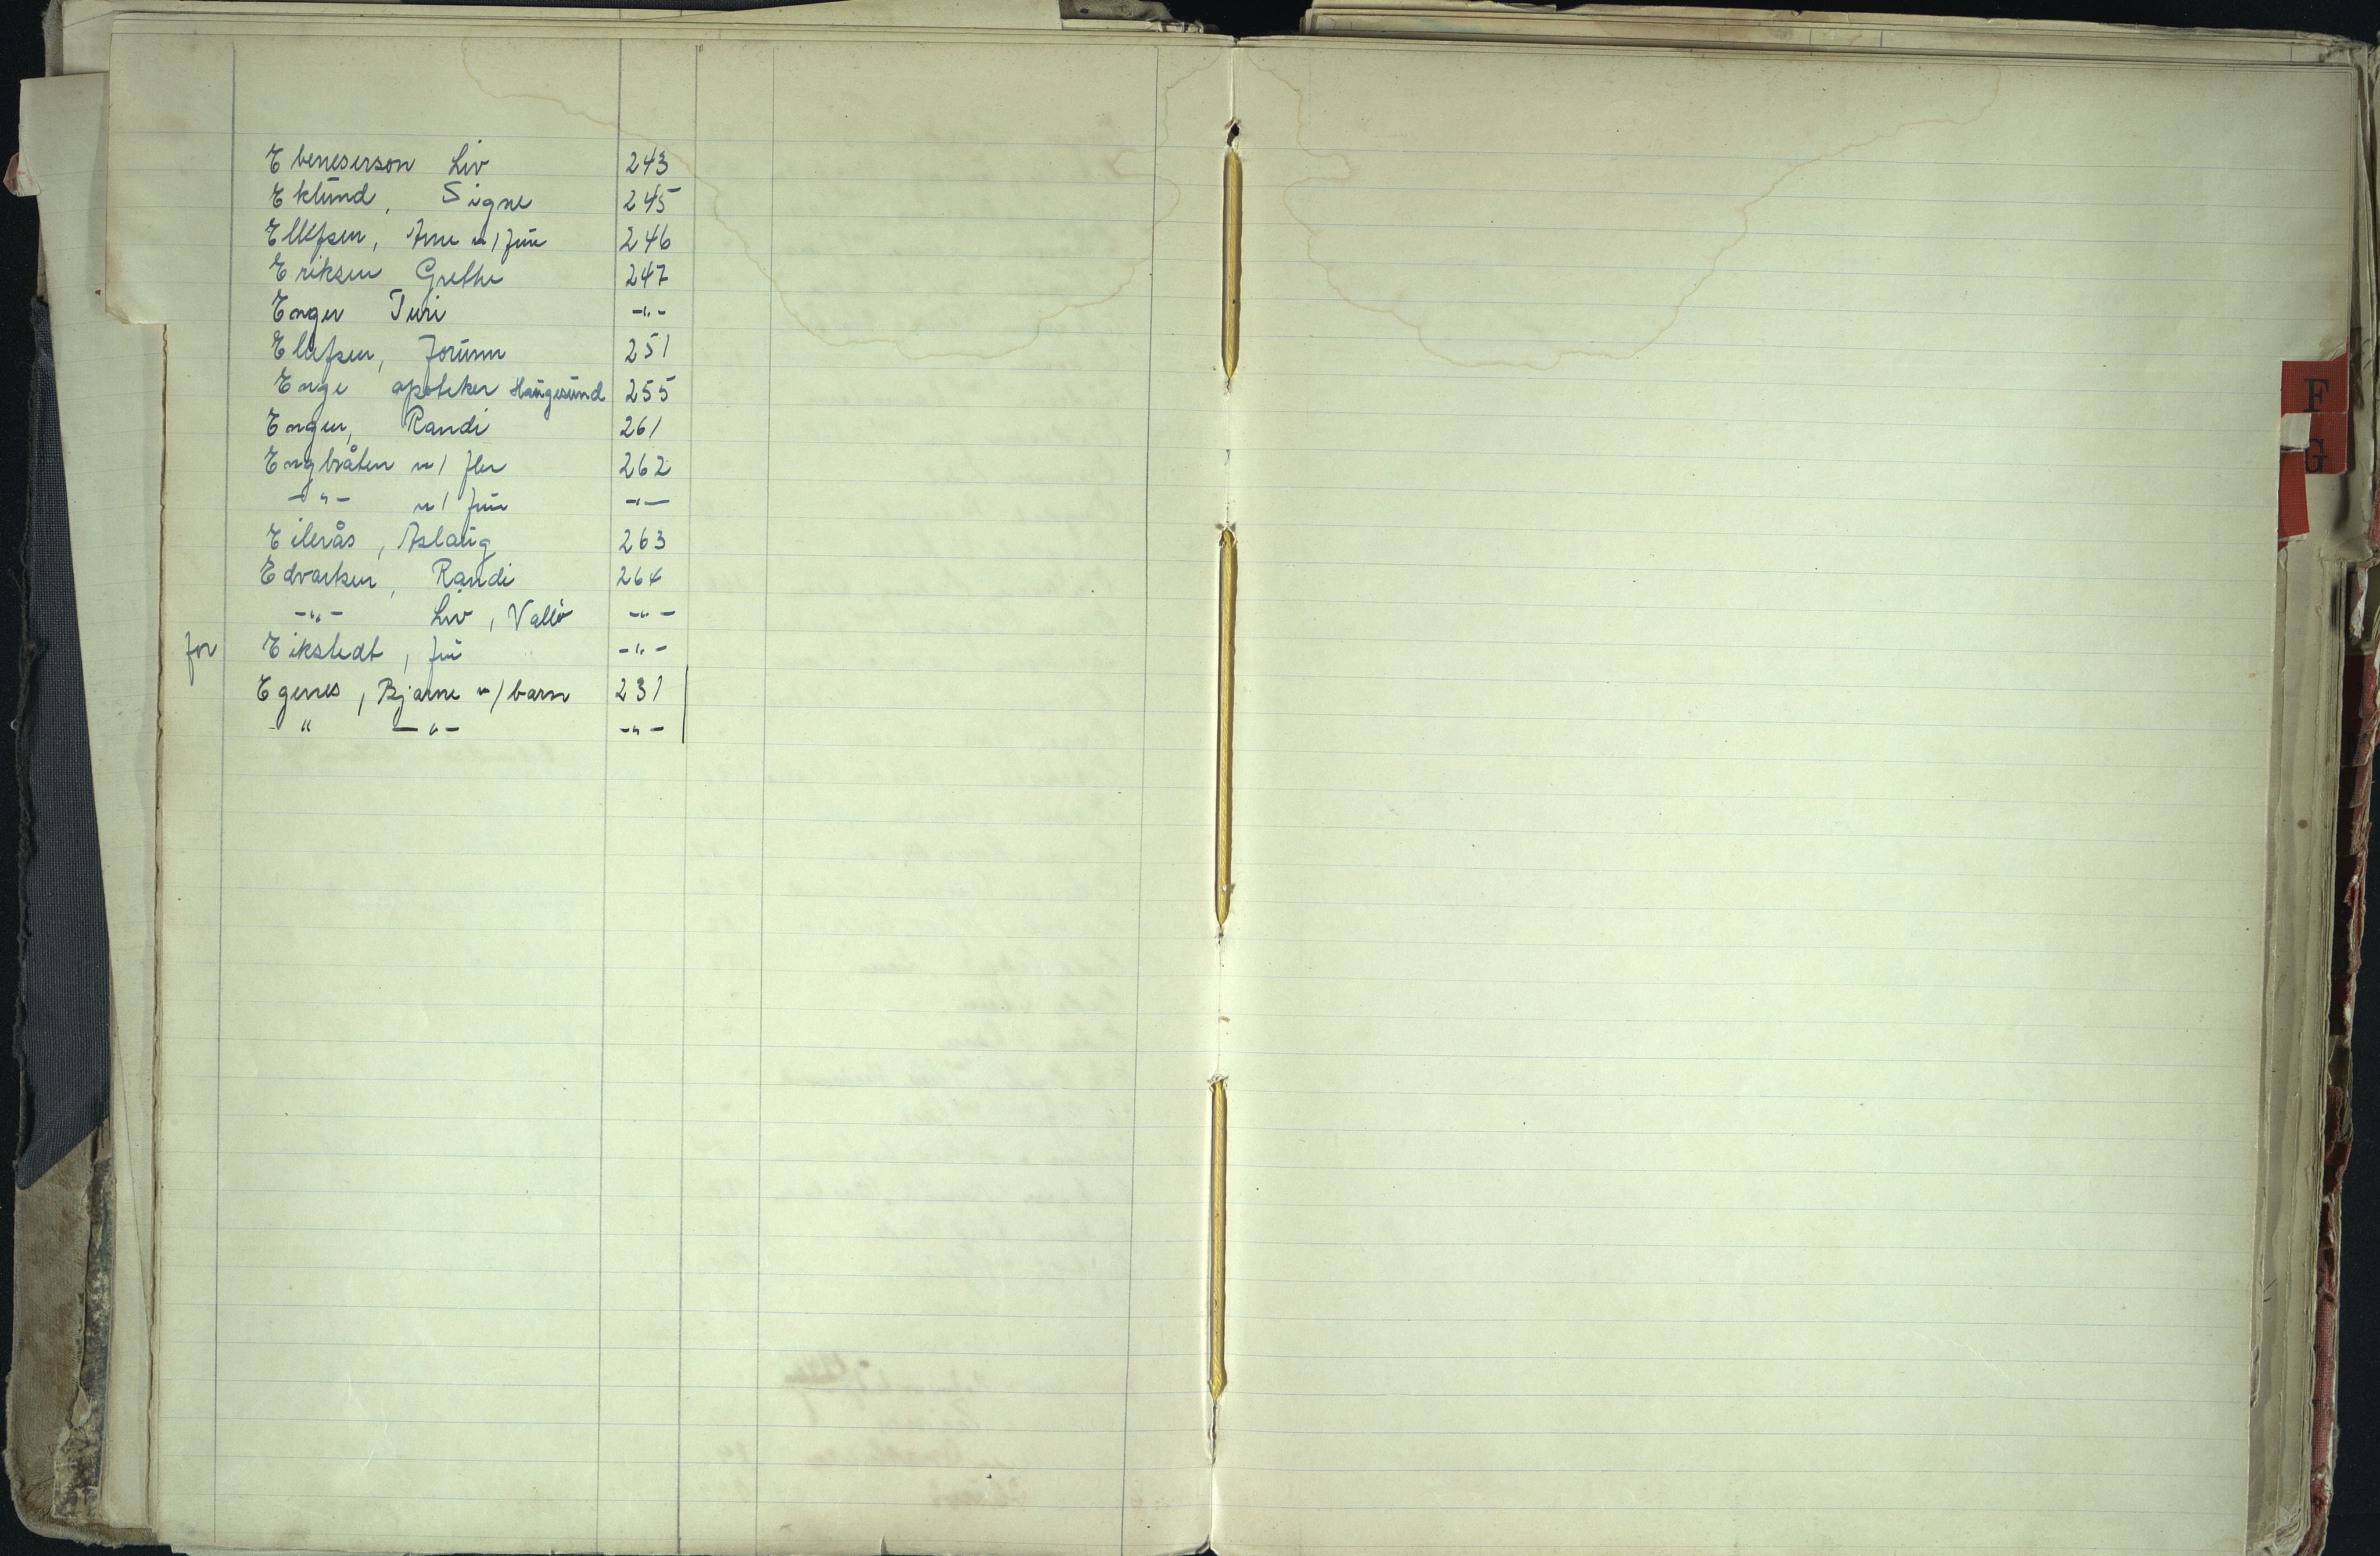 Ebeneserson Liv 243
Eklund, Signe 245
Ellefsen, Arne m/ frue 246
Eriksen Grethe 247
Enger Turi -"-
Elefsen, Jorunn 251
Enge apoteker Haugesund 255
Enger, Randi 261
Engbråten m/ fler 262
-"- m/ frue -"-
Eilerås, Aslaug 263
Edvarsen, Randi 264
-"- Liv, Vallö -"-
for Eikstedt, fru -"-
Egenes, Bjarne m/ barn 231
" -"- -"-
F
G